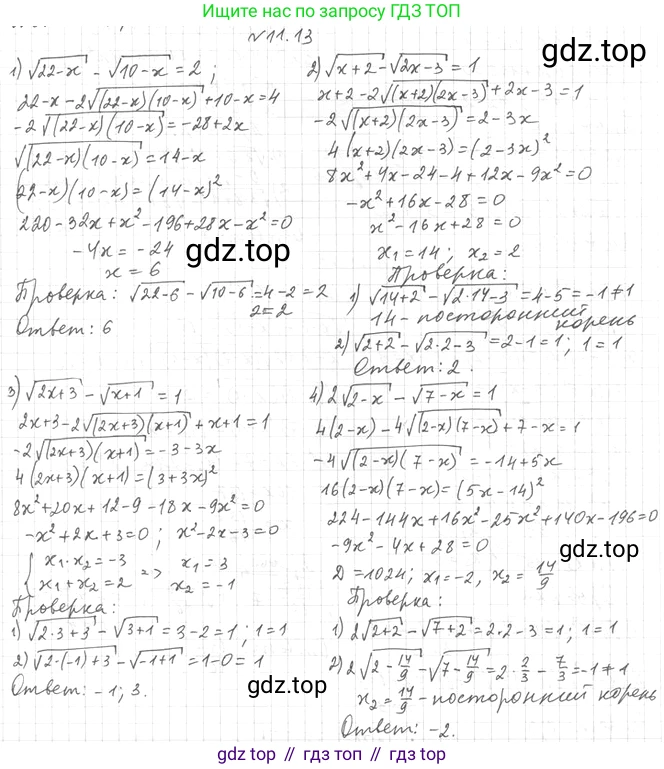 Ищите нас по запросу ГДЗ ТОП
№11.13
gdz.top
1) √(22-x) - √(10-x) = 2 ;
22-x-2√((22-x)(10-x))+10-x=4
-2√((22-x)(10-x))=-28+2x
√((22-x)(10-x))=14-x
(22-x)(10-x)=(14-x)²
220-32x+x²-196+28x-x²=0
-4x=-24
x=6
gdz.top
Проверка: √(22-6) - √(10-6)=4-2=2
2=2
Ответ: 6
2) √(x+2)-√(2x-3)=1
x+2-2√((x+2)(2x-3))+2x-3=1
-2√((x+2)(2x-3))=2-3x
4(x+2)(2x-3)=(2-3x)²
8x²+4x-24-4+12x-9x²=0
-x²+16x-28=0
x²-16x+28=0
x₁=14; x₂=2
Проверка:
1) √(14+2)-√(2·14-3)=4-5=-1≠1
14-посторонний корень
2) √(2+2)-√(2·2-3)=2-1=1; 1=1
Ответ: 2.
3) √(2x+3)-√(x+1)=1
2x+3-2√((2x+3)(x+1))+x+1=1
-2√((2x+3)(x+1))=-3-3x
4(2x+3)(x+1)=(3+3x)²
8x²+20x+12-9-18x-9x²=0
-x²+2x+3=0; x²-2x-3=0
{ x₁·x₂=-3 x₁=3
x₁+x₂=2 => x₂=-1
Проверка:
1) √(2·3+3)-√(3+1)=3-2=1; 1=1
2) √(2·(-1)+3)-√(-1+1)=1-0=1
Ответ: -1; 3.
gdz.top
4) 2√(2-x)-√(7-x)=1
4(2-x)-4√((2-x)(7-x))+7-x=1
-4√((2-x)(7-x))=-14+5x
16(2-x)(7-x)=(5x-14)²
224-144x+16x²-25x²+140x-196=0
-9x²-4x+28=0
gdz.top
D=1024; x₁=-2, x₂=14/9
Проверка:
1) 2√(2+2)-√(7+2)=2·2-3=1; 1=1
2) 2√(2-14/9)-√(7-14/9)=2·2/3-7/3=-1≠1
x₂=14/9-посторонний корень
Ответ: -2.
gdz.top // гдз.топ // гдз топ